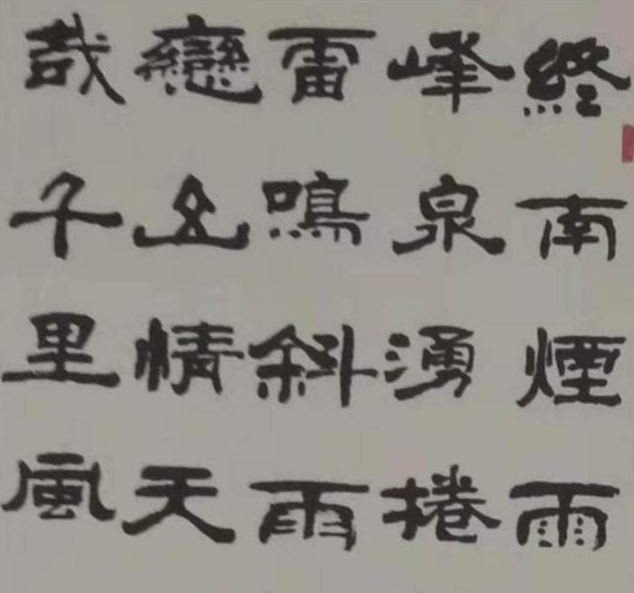 終南煙雨
峰泉湧捲
雷鳴斜雨
戀情天
哉千里風